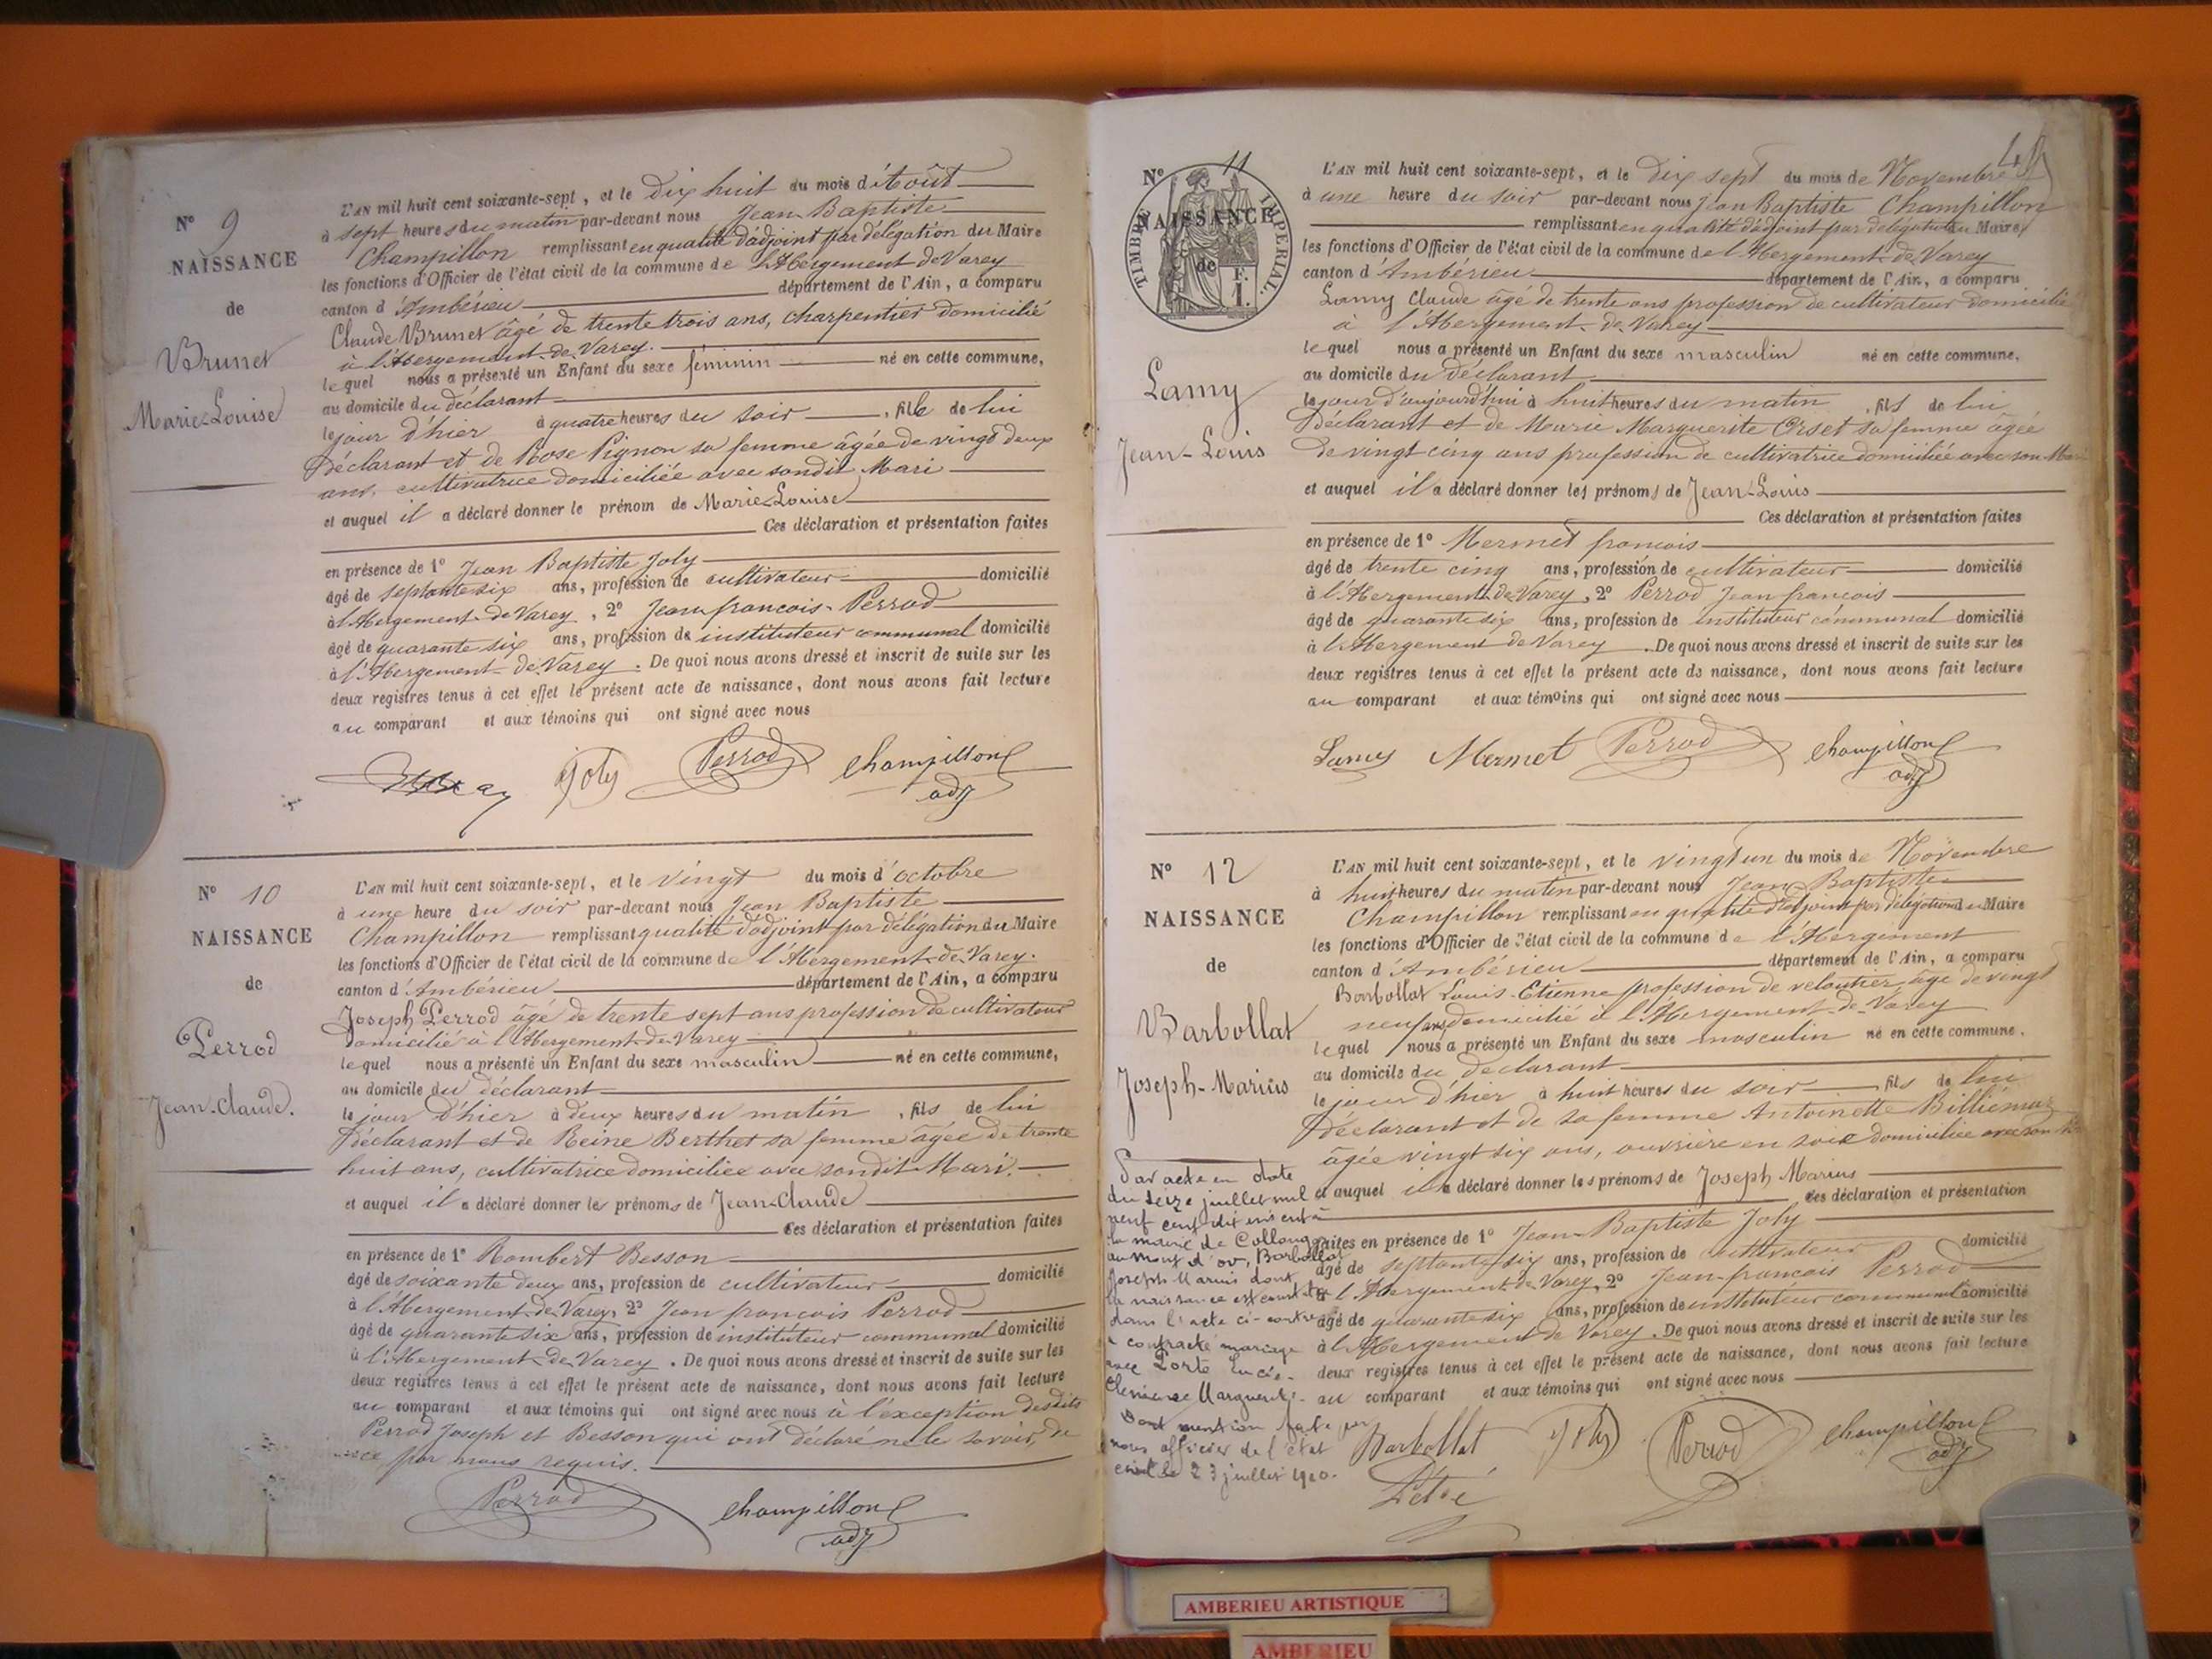 N° 9
NAISSANCE
de
Brunet
Marie-Louise
L'AN mil huit cent soixante-sept, et le Dix huit du mois d'Août
à sept heures du matin par-devant nous Jean-Baptiste
Champillon remplissant en qualité d'adjoint par délégation du Maire
les fonctions d'Officier de l'état civil de la commune de L'Abergement de Varey
canton d'Ambérieu département de l'Ain, a comparu
Claude Brunet âgé de trente trois ans, charpentier domicilié
à l'Abergement-de-Varey.
lequel nous a présenté un Enfant du sexe féminin né en cette commune,
au domicile du déclarant
le jour d'hier à quatre heures du soir, fille de lui
Déclarant et de Rose Pignon sa femme âgée de vingt deux
ans, cultivatrice domiciliée avec sondit Mari
et auquel il a déclaré donner le prénom de Marie-Louise
Ces déclaration et présentation faites
en présence de 1° Jean Baptiste Joly
âgé de septante six ans, profession de cultivateur domicilié
à l'Abergement-de-Varey, 2° Jean françois Perrod
âgé de quarante six ans, profession de instituteur communal domicilié
à l'Abergement-de-Varey. De quoi nous avons dressé et inscrit de suite sur les
deux registres tenus à cet effet le présent acte de naissance, dont nous avons fait lecture
au comparant et aux témoins qui ont signé avec nous
Joly Perrod Champillon
adj
N° 10
NAISSANCE
de
Perrod
Jean-Claude.
L'AN mil huit cent soixante-sept, et le vingt du mois d'octobre
à une heure du soir par-devant nous Jean Baptiste
Champillon remplissant qualité d'adjoint par délégation du Maire
les fonctions d'Officier de l'état civil de la commune de l'Abergement-de-Varey.
canton d'Ambérieu département de l'Ain, a comparu
Joseph Perrod âgé de trente sept ans profession de cultivateur
domicilié à l'Abergement-de-Varey
lequel nous a présenté un Enfant du sexe masculin né en cette commune,
au domicile du déclarant
le jour d'hier à deux heures du matin, fils de lui
Déclarant et de Reine Berthet sa femme âgée de trente
huit ans, cultivatrice domiciliée avec sondit Mari.
et auquel il a déclaré donner les prénoms de Jean-Claude
Ces déclaration et présentation faites
en présence de 1° Rambert Besson
âgé de soixante deux ans, profession de cultivateur domicilié
à l'Abergement-de-Varey, 2° Jean françois Perrod
âgé de quarante six ans, profession de instituteur communal domicilié
à l'Abergement-de-Varey. De quoi nous avons dressé et inscrit de suite sur les
deux registres tenus à cet effet le présent acte de naissance, dont nous avons fait lecture
au comparant et aux témoins qui ont signé avec nous à l'exception desdits
Perrod Joseph et Besson qui ont déclaré ne le savoir, de
ce par nous requis.
Perrod Champillon
adj
N° 11
NAISSANCE
de
TIMBRE IMPERIAL
F.
1.
Lamy
Jean-Louis
L'AN mil huit cent soixante-sept, et le Dix sept du mois de Novembre
à une heure du soir par-devant nous Jean Baptiste Champillon
remplissant en qualité d'adjoint par délégation du Maire
les fonctions d'Officier de l'état civil de la commune de l'Abergement-de-Varey
canton d'Ambérieu département de l'Ain, a comparu
Lamy Claude âgé de trente ans profession de cultivateur domicilié
à l'Abergement-de-Varey
lequel nous a présenté un Enfant du sexe masculin né en cette commune,
au domicile du déclarant
le jour d'aujourd'hui à huit heures du matin, fils de lui
Déclarant et de Marie Marguerite Orset sa femme âgée
de vingt cinq ans profession de cultivatrice domiciliée avec son Mari
et auquel il a déclaré donner les prénoms de Jean-Louis
Ces déclaration et présentation faites
en présence de 1° Mermet françois
âgé de trente cinq ans, profession de cultivateur domicilié
à l'Abergement-de-Varey, 2° Perrod Jean françois
âgé de quarante six ans, profession de instituteur communal domicilié
à l'Abergement de Varey. De quoi nous avons dressé et inscrit de suite sur les
deux registres tenus à cet effet le présent acte de naissance, dont nous avons fait lecture
au comparant et aux témoins qui ont signé avec nous
Lamy Mermet Perrod Champillon
adj
N° 12
NAISSANCE
de
Barbollat
Joseph-Marius
L'AN mil huit cent soixante-sept, et le vingt un du mois de Novembre
à huit heures du matin par-devant nous Jean Baptiste
Champillon remplissant en qualité d'adjoint par délégation du Maire
les fonctions d'Officier de l'état civil de la commune de l'Abergement
canton d'Ambérieu département de l'Ain, a comparu
Barbollat Louis-Etienne profession de veloutier âgé de vingt
neuf ans, domicilié à l'Abergement-de-Varey
lequel nous a présenté un Enfant du sexe masculin né en cette commune,
au domicile du déclarant
le jour d'hier à huit heures du soir, fils de lui
Déclarant et de sa femme Antoinette
âgée vingt six ans, ouvrière en soie domiciliée avec son
et auquel il a déclaré donner les prénoms de Joseph Marius
Ces déclaration et présentation
faites en présence de 1° Jean-Baptiste Joly
âgé de septante six ans, profession de cultivateur domicilié
à l'Abergement-de-Varey, 2° Jean-françois Perrod
âgé de quarante six ans, profession de instituteur communal domicilié
à l'Abergement de Varey. De quoi nous avons dressé et inscrit de suite sur les
deux registres tenus à cet effet le présent acte de naissance, dont nous avons fait lecture
au comparant et aux témoins qui ont signé avec nous
Barbollat Joly Perrod Champillon
adj
Par acte en date
du seize juillet mil
neuf cent dix inscrit à
la mairie de Collonges
au mont d'or, Barbollat
Joseph Marius dont
la naissance est constatée
dans l'acte ci-contre
a contracté mariage
avec Porte Lucie-
Clémence Marguerite.
Dont mention faite par
nous officier de l'état
civil le 23 juillet 1910.
AMBERIEU ARTISTIQUE
AMBERIEU